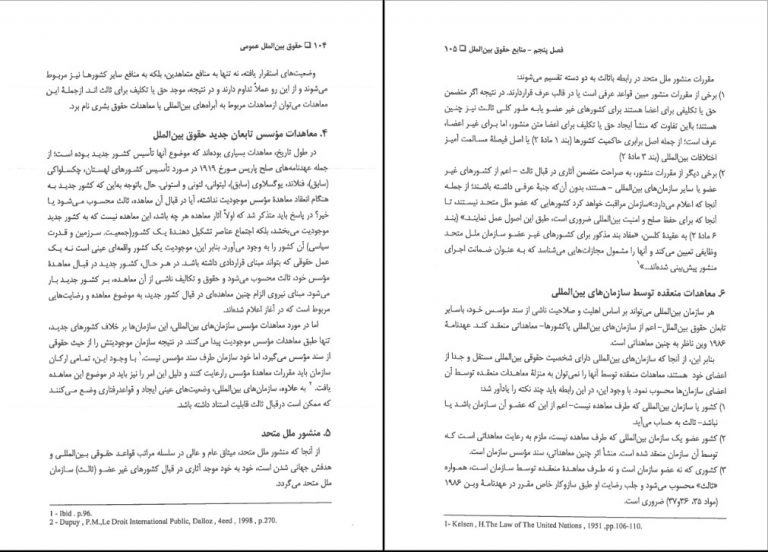 ۱۰۴ ❐ حقوق بین‌الملل عمومی
وضعیت‌های استقرار یافته، نه تنها به منافع متعاهدین، بلکه به منافع سایر کشورها نیز مربوط
می‌شوند و از این رو عملاً تداوم دارند و در نتیجه، موجد حق یا تکلیف برای ثالث اند. ازجملهٔ این
معاهدات می‌توان ازمعاهدات مربوط به آبراه‌های بین‌المللی یا معاهدات حقوق بشری نام برد.
۴. معاهدات مؤسس تابعان جدید حقوق بین‌الملل
در طول تاریخ، معاهدات بسیاری بوده‌اند که موضوع آنها تأسیس کشور جدید بوده است؛ از
جمله عهدنامه‌های صلح پاریس مورخ ۱۹۱۹ در مورد تأسیس کشورهای لهستان، چکسلواکی
(سابق)، فنلاند، یوگسلاوی (سابق)، لیتوانی، لتونی و استونی. حال باتوجه به‌این که کشور جدید به
هنگام انعقاد معاهدهٔ مؤسس موجودیت نداشته، آیا در قبال آن معاهده، ثالث محسوب می‌شود یا
خیر؟ در پاسخ باید متذکر شد که اولاً آثار معاهده هر چه باشد، این معاهده نیست که به کشور جدید
موجودیت می‌بخشد، بلکه اجتماع عناصر تشکیل دهندهٔ یک کشور(جمعیت، سرزمین و قدرت
سیاسی) آن کشور را به وجود می‌آورد. بنابر این، موجودیت یک کشور واقعه‌ای عینی است نه یک
عمل حقوقی که بتواند مبنای قراردادی داشته باشد. در هر حال، کشور جدید در قبال معاهدهٔ
مؤسس خود، ثالث محسوب می‌شود و حقوق و تکالیف ناشی از آن معاهده، بر کشور جدید بار
می‌شود. مبنای نیروی الزام چنین معاهده‌ای در قبال کشور جدید، به موضوع معاهده و رضایت‌هایی
مربوط است که در آغاز اعلام شده‌اند.
اما در مورد معاهدات مؤسس سازمان‌های بین‌المللی، این سازمان‌ها بر خلاف کشورهای جدید،
تنها طبق معاهدات مؤسس موجودیت پیدا می‌کنند. در نتیجه سازمان موجودیتش را از حیث حقوقی
از سند مؤسس می‌گیرد، اما خود سازمان طرف سند مؤسس نیست.۱ با وجود این، تمامی ارکان
سازمان باید مقررات معاهدهٔ مؤسس رارعایت کنند و دلیل این امر را نیز باید در موضوع این معاهده
یافت.۲ به علاوه، سازمان‌های بین‌المللی، وضعیت‌های عینی ایجاد و قواعدرفتاری وضع می‌کنند
که ممکن است درقبال ثالث قابلیت استناد داشته باشد.
۵. منشور ملل متحد
از آنجا که منشور ملل متحد، میثاق عام و عالی در سلسله مراتب قواعد حقوقی بین‌المللی و
هدفش جهانی شدن است، خود به خود موجد آثاری در قبال کشورهای غیر عضو (ثالث) سازمان
ملل متحد می‌گردد.
1 - Ibid . p.96.
2 - Dupuy , P.M.,Le Droit International Public, Dalloz , 4eed , 1998 , p.270.
فصل پنجم - منابع حقوق بین‌الملل ❐ ۱۰۵
مقررات منشور ملل متحد در رابطه باثالث به دو دسته تقسیم می‌شوند:
۱) برخی از مقررات منشور مبین قواعد عرفی است یا در قالب عرف قراردارند. در نتیجه اگر متضمن
حق یا تکلیفی برای اعضا هستند برای کشورهای غیر عضو یابه طور کلی ثالث نیز چنین
هستند؛ بااین تفاوت که منشأ ایجاد حق یا تکلیف برای اعضا متن منشور، اما برای غیر اعضا،
عرف است؛ از جمله اصل برابری حاکمیت کشورها (بند ۱ مادهٔ ۲) یا اصل فیصلهٔ مسالمت آمیز
اختلافات بین‌المللی (بند ۳ مادهٔ ۲)
۲) برخی دیگر از مقررات منشور، به صراحت متضمن آثاری در قبال ثالث - اعم از کشورهای غیر
عضو یا سایر سازمان‌های بین‌المللی - هستند، بدون آن‌که جنبهٔ عرفی داشته باشند؛ از جمله
آنجا که اعلام می‌دارد:«سازمان مراقبت خواهد کرد کشورهایی که عضو ملل متحد نیستند، تا
آنجا که برای حفظ صلح و امنیت بین‌المللی ضروری است، طبق این اصول عمل نمایند.» (بند
۶ مادهٔ ۲) به عقیدهٔ کلسن، «مفاد بند مذکور برای کشورهای غیر عضو سازمان ملل متحد
وظایفی تعیین می‌کند و آنها را مشمول مجازات‌هایی می‌شناسد که به‌عنوان ضمانت اجرای
منشور پیش‌بینی شده‌اند...»۱
۶. معاهدات منعقده توسط سازمان‌های بین‌المللی
هر سازمان بین‌المللی می‌تواند بر اساس اهلیت و صلاحیت ناشی از سند مؤسس خود، باسایر
تابعان حقوق بین‌الملل- اعم از سازمان‌های بین‌المللی یاکشورها- معاهداتی منعقد کند. عهدنامهٔ
۱۹۸۶ وین ناظر به چنین معاهداتی است.
بنابر این، از آنجا که سازمان‌های بین‌المللی دارای شخصیت حقوقی بین‌المللی مستقل و جدا از
اعضای خود هستند، معاهدات منعقده توسط آنها را نمی‌توان به منزلهٔ معاهدات منعقده توسط آن
اعضای سازمان‌ها محسوب نمود. با وجود این، در این رابطه باید چند نکته را یادآور شد:
۱) کشور یا سازمان بین‌المللی که طرف معاهده نیست- اعم از این که عضو آن سازمان باشد یا
نباشد- ثالث به حساب می‌آید.
۲) کشور عضو یک سازمان بین‌المللی که طرف معاهده نیست، ملزم به رعایت معاهداتی است که
توسط آن سازمان منعقد شده است. منشأ اثر چنین معاهداتی، سند مؤسس سازمان است.
۳) کشوری که نه عضو سازمان است و نه طرف معاهدهٔ منعقده توسط سازمان است، همواره
«ثالث» محسوب می‌شود و جلب رضایت او طبق سازوکار خاص مقرر در عهدنامهٔ وین ۱۹۸۶
(مواد ۳۵، ۳۶و۳۷) ضروری است.
1- Kelsen , H.The Law of The United Nations , 1951 ,pp.106-110.